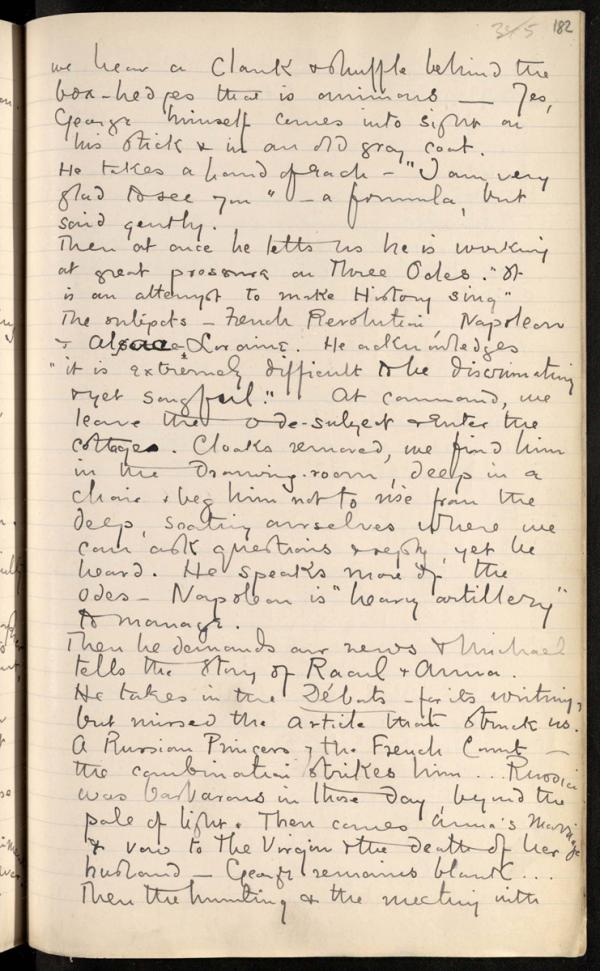 35/5 182
we hear a Clank & shuffle behind the
box-hedges that is ominous — Yes,
George himself comes into sight on
his stick & in an old gray coat.
He takes a hand of each – "I am very
glad to see you" – a formula, but
said gently.
Then at once he tells us he is working
at great pressure on Three Odes. "It
is an attempt to make History sing"
The subjects – French Revolution, Napoleon
& Alsace & Loraine. He acknowledges
"it is extremely difficult to be discriminating
& yet songful." At command, we
leave the ode-subject & enter the
cottage. Cloaks removed, we find him
in the Drawing-room, deep in a
chair & beg him not to rise from the
deep, seating ourselves where we
can ask questions & reply, yet be
heard. He speaks more of the
Odes – Napoleon is "heavy artillery"
to manage.
Then he demands our news & Michael
tells the story of Raoul & Anna.
He takes in the Débats – for its writing,
but missed the article that struck us.
A Russian Princess & the French Court —
the combination strikes him ... Russia
was barbarous in those day, beyond the
pale of light. Then comes Anna's Marriage
& vow to the Virgin & the death of her
husband — George remains blank ...
Then the hunting & the meeting with